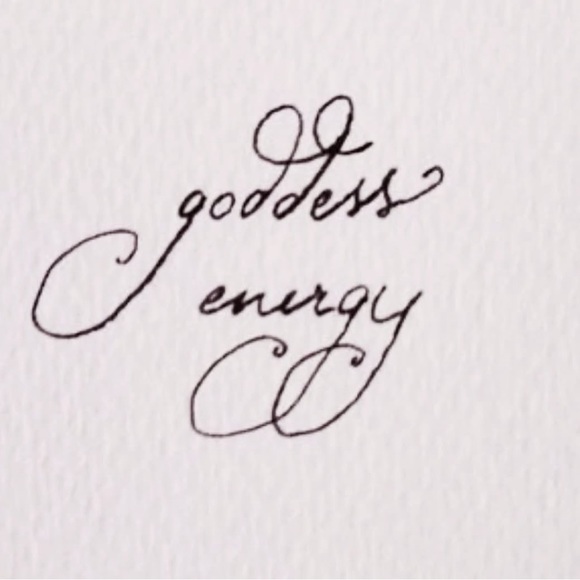 goddess
energy